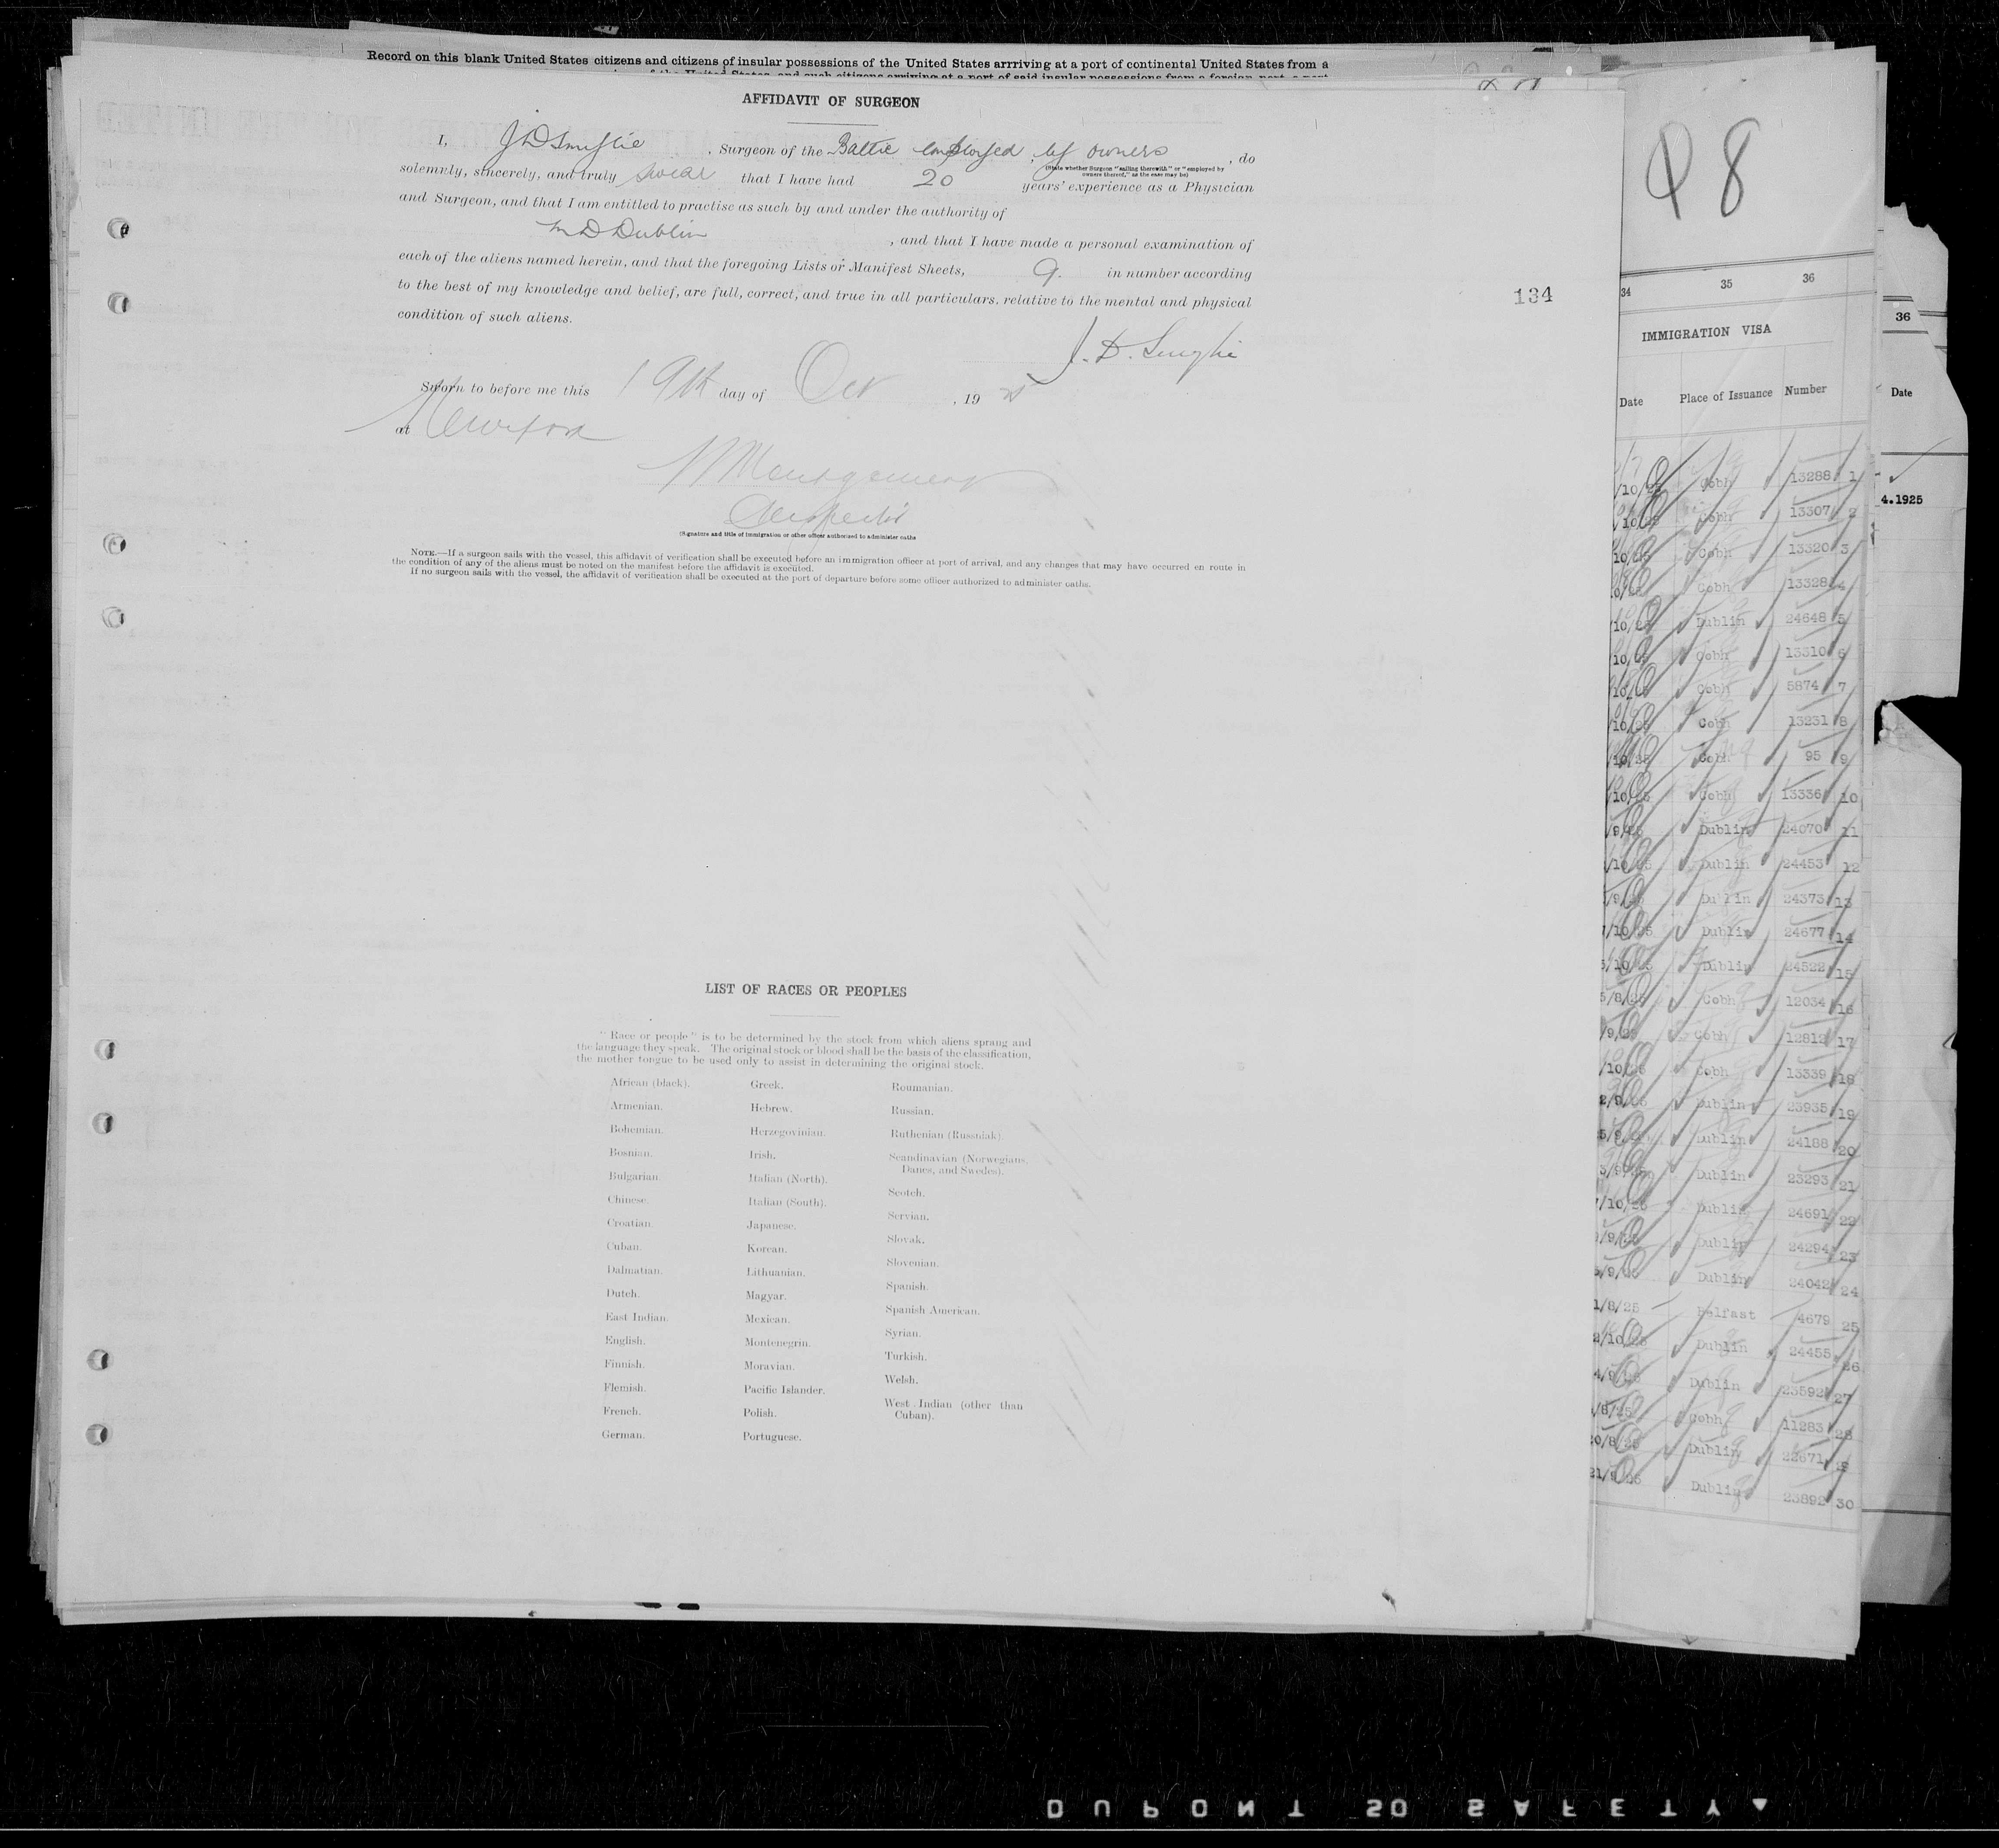 Record on this blank United States citizens and citizens of insular possessions of the United States arrriving at a port of continental United States from a
AFFIDAVIT OF SURGEON
I, , Surgeon of the Baltic employed, by owners, do
(State whether Surgeon "sailing therewith" or "employed by owners thereof," as the case may be)
solemnly, sincerely, and truly swear that I have had 20 years' experience as a Physician
and Surgeon, and that I am entitled to practise as such by and under the authority of
M D Dublin , and that I have made a personal examination of
each of the aliens named herein, and that the foregoing Lists or Manifest Sheets, 9. in number according
to the best of my knowledge and belief, are full, correct, and true in all particulars, relative to the mental and physical
condition of such aliens.
134
Sworn to before me this 19th day of Oct , 19 25
at New York
Montgomery
Inspector
(Signature and title of immigration or other officer authorized to administer oaths
NOTE.—If a surgeon sails with the vessel, this affidavit of verification shall be executed before an immigration officer at port of arrival, and any changes that may have occurred en route in
the condition of any of the aliens must be noted on the manifest before the affidavit is executed.
If no surgeon sails with the vessel, the affidavit of verification shall be executed at the port of departure before some officer authorized to administer oaths.
LIST OF RACES OR PEOPLES
"Race or people" is to be determined by the stock from which aliens sprang and
the language they speak. The original stock or blood shall be the basis of the classification,
the mother tongue to be used only to assist in determining the original stock.
African (black).
Armenian.
Bohemian.
Bosnian.
Bulgarian.
Chinese.
Croatian.
Cuban.
Dalmatian.
Dutch.
East Indian.
English.
Finnish.
Flemish.
French.
German.
Greek.
Hebrew.
Herzegovinian.
Irish.
Italian (North).
Italian (South).
Japanese.
Korean.
Lithuanian.
Magyar.
Mexican.
Montenegrin.
Moravian.
Pacific Islander.
Polish.
Portuguese.
Roumanian.
Russian.
Ruthenian (Russniak).
Scandinavian (Norwegians,
Danes, and Swedes).
Scotch.
Servian.
Slovak.
Slovenian.
Spanish.
Spanish American.
Syrian.
Turkish.
Welsh.
West Indian (other than
Cuban).
98
34 35 36
IMMIGRATION VISA
Date Place of Issuance Number
/10/25 Cobh 13288 1
/10/25 Cobh 13307 2
10/25 Cobh 13320 3
0/25 Cobh 13328 4
/10/25 Dublin 24648 5
/10/25 Cobh 13310 6
/10/25 Cobh 5874 7
/10/25 Cobh 13231 8
/10/25 Cobh 95 9
/10/25 Cobh 13336 10
/9/25 Dublin 24070 11
/10/25 Dublin 24453 12
/9/25 Dublin 24373 13
7/10/25 Dublin 24677 14
5/10/25 Dublin 24522 15
5/8/25 Cobh 12034 16
/9/25 Cobh 12812 17
/10/25 Cobh 13339 18
2/9/25 Dublin 23935 19
5/9/25 Dublin 24188 20
3/9/25 Dublin 23293 21
7/10/25 Dublin 24691 22
/9/25 Dublin 24294 23
5/9/25 Dublin 24042 24
1/8/25 Belfast 4679 25
2/10/25 Dublin 24455 26
4/9/25 Dublin 23592 27
/8/25 Cobh 11283 28
20/8/25 Dublin 22671 29
21/9/25 Dublin 23892 30
36
Date
4.1925
DUPONT SO SAFETY